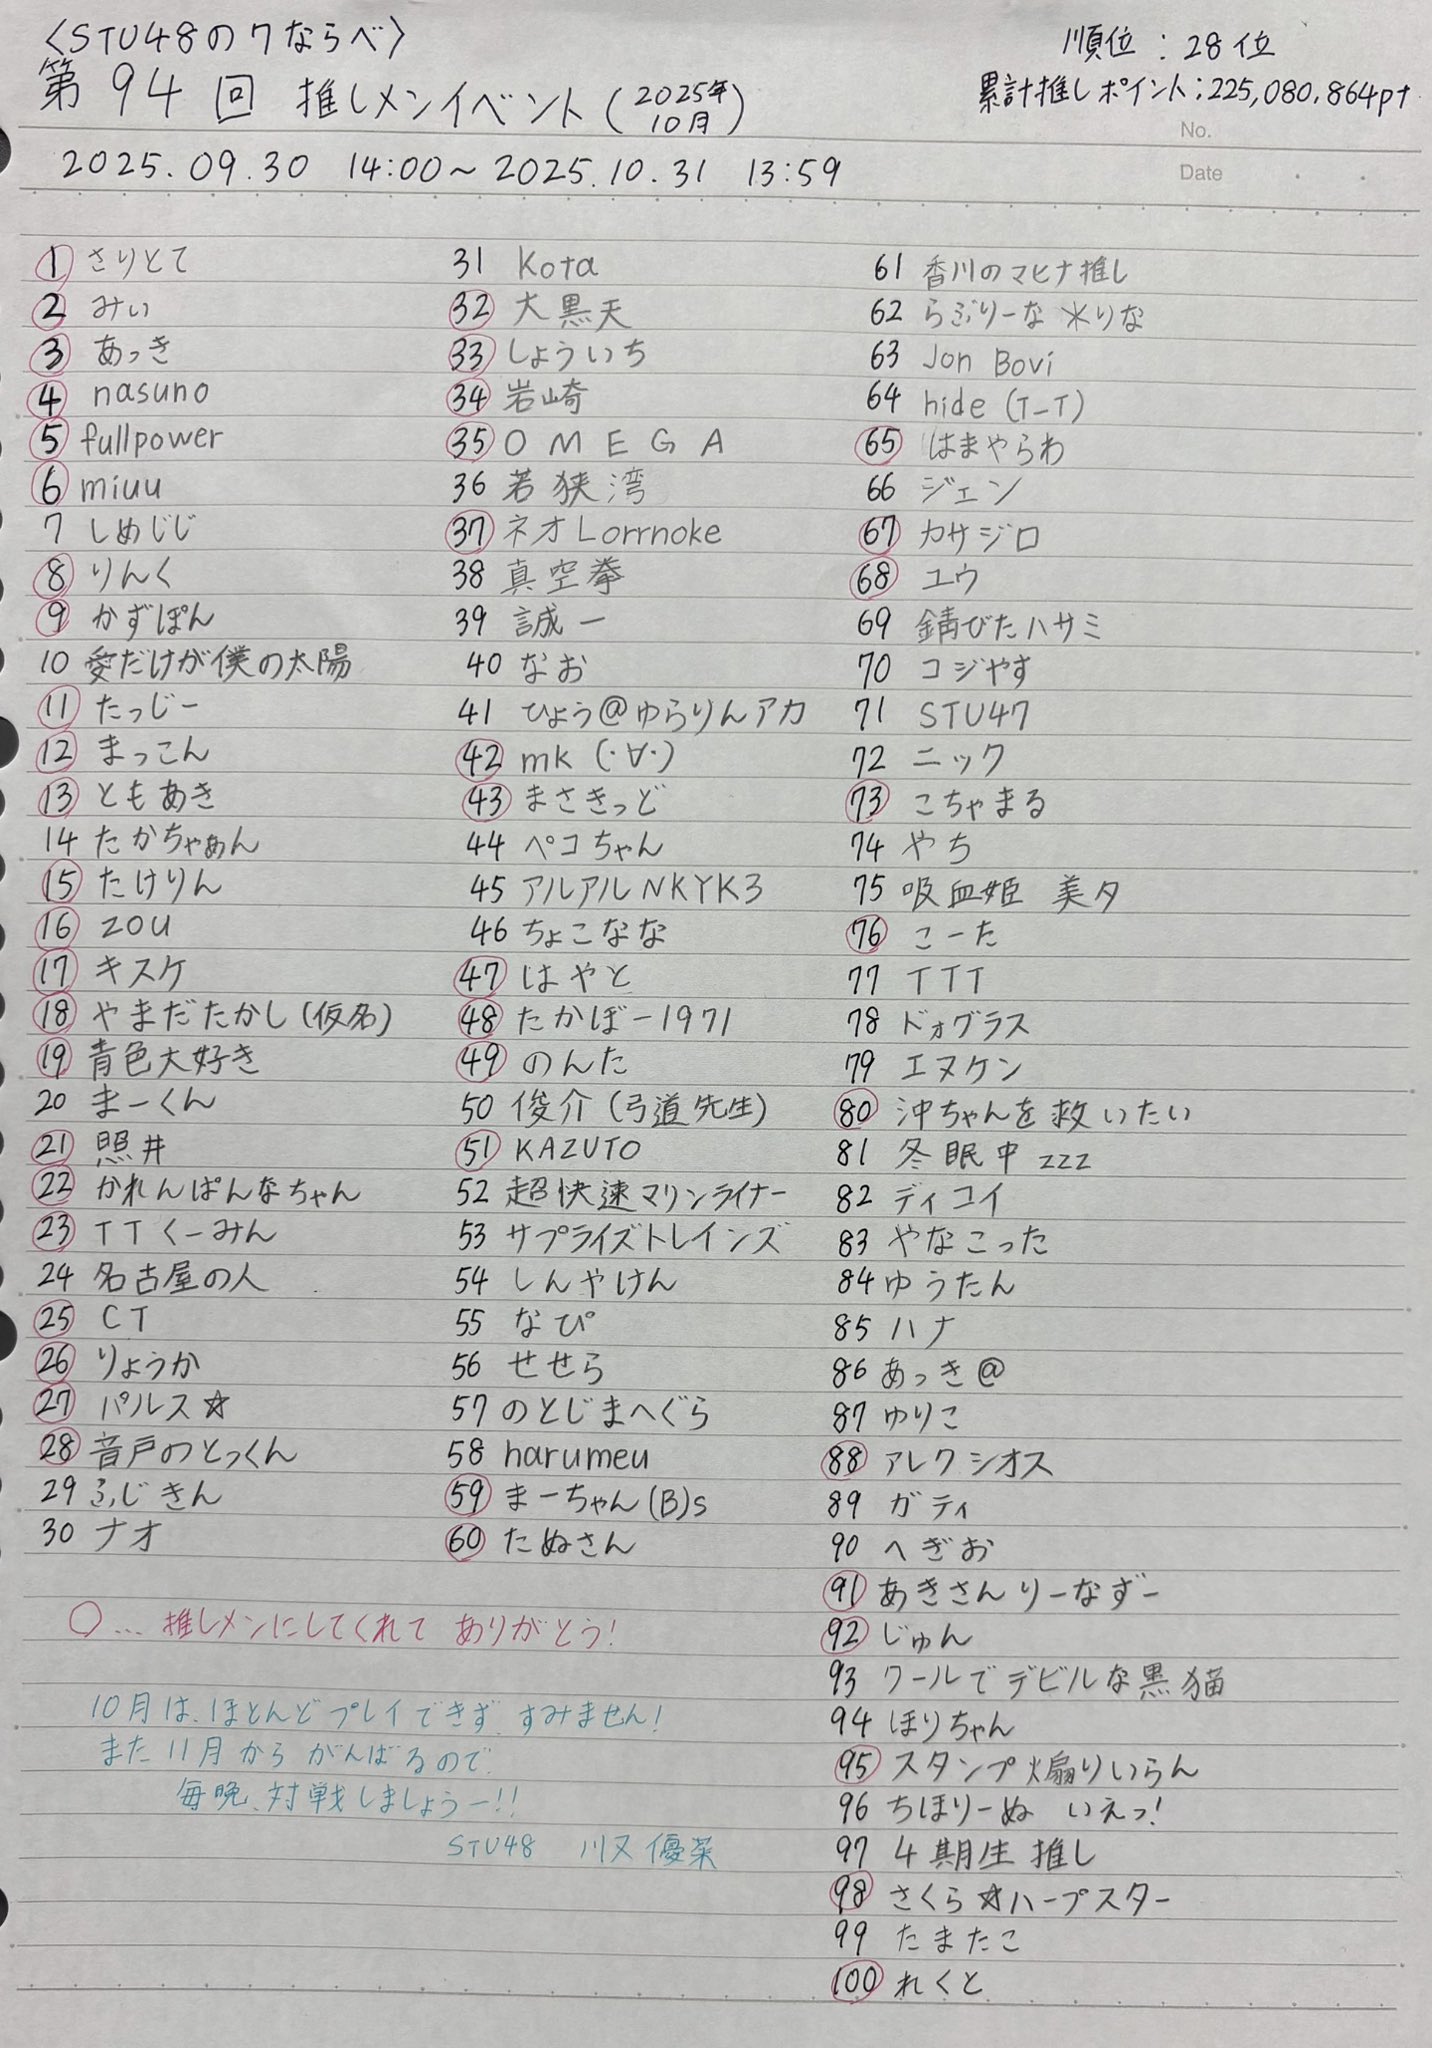 〈STU48の7ならべ〉
第94回 推しメンイベント(2025年10月)
順位:28位
累計推しポイント:225,080,864pt
No.
Date
2025.09.30 14:00~2025.10.31 13:59
① さりとて
② みぃ
③ あっき
④ nasuno
⑤ fullpower
⑥ miuu
7 しめじじ
⑧ りんく
⑨ かずぽん
10 愛だけが僕の太陽
⑪ たっじー
⑫ まっこん
⑬ ともあき
14 たかちゃぁん
⑮ たけりん
⑯ ZOU
⑰ キスケ
⑱ やまだたかし(仮名)
⑲ 青色大好き
20 まーくん
㉑ 照井
㉒ かれんぱんなちゃん
㉓ TTくーみん
24 名古屋の人
㉕ CT
㉖ りょうか
㉗ パルス☆
㉘ 音戸のとっくん
29 ふじきん
30 ナオ
31 Kota
㉜ 大黒天
㉝ しょういち
㉞ 岩崎
㉟ OMEGA
36 若狭湾
㊲ ネオLorrnoke
38 真空拳
39 誠一
40 なお
41 ひょう@ゆらりんアカ
㊷ mk(・∀・)
㊸ まさきっど
44 ペコちゃん
45 アルアルNKYK3
46 ちょこなな
㊼ はやと
㊽ たかぼー1971
㊾ のんた
50 俊介(弓道先生)
51 KAZUTO
52 超快速マリンライナー
53 サプライズトレインズ
54 しんやけん
55 なぴ
56 せせら
57 のとじまへぐら
58 harumeu
59 まーちゃん(B)s
60 たぬさん
61 香川のマヒナ推し
62 らぶりーな*りな
63 Jon Bovi
64 hide(T_T)
65 はまやらわ
66 ジェン
67 カサジロ
68 ユウ
69 錆びたハサミ
70 コジやす
71 STU47
72 ニック
73 こちゃまる
74 やち
75 吸血姫 美夕
76 こーた
77 TTT
78 ドォグラス
79 エヌケン
80 沖ちゃんを救いたい
81 冬眠中zzz
82 ディコイ
83 やなこった
84 ゆうたん
85 ハナ
86 あっき@
87 ゆりこ
88 アレクシオス
89 ガティ
90 へぎお
91 あきさんりーなずー
92 じゅん
93 クールでデビルな黒猫
94 ほりちゃん
95 スタンプ煽りいらん
96 ちほりーぬ いえっ!
97 4期生推し
98 さくら☆ハープスター
99 たまたこ
100 れくと
○…推しメンにしてくれてありがとう!
10月は、ほとんどプレイできず、すみません!
また11月からがんばるので、
毎晩、対戦しましょうー!!
STU48 川又優菜